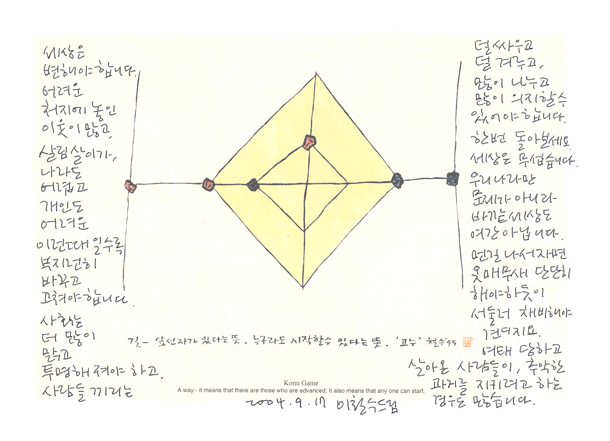 세상은
변해야 합니다.
어려운
처지에 놓인
이웃이 많고,
살림살이가,
나라도
어렵고
개인도
어려운
이런때 일수록
부지런히
바꾸고
고쳐야 합니다.
사회는
더 많이
맑고
투명해져야 하고,
사람들 끼리는
덜 싸우고
덜 겨누고,
많이 나누고
많이 의지할수
있어야 합니다.
한번 돌아보세요
세상은 무섭습니다.
우리나라만
문제가 아니라
바깥세상도
여간 아닙니다.
먼길 나서자면
옷매무새 단단히
해야하듯이
서둘러 채비해야
겠지요.
여태 당하고
살아온 사람들이, 추악한
과거를 지키려고 하는
경우도 많습니다.
길- 앞선자가 있다는 뜻. 누구라도 시작할수 있다는 뜻. '고누' 철수'95
Konu Game
A way– It means that there are those who are advanced; It also means that any one can start.
2004.9.17 이철수드림